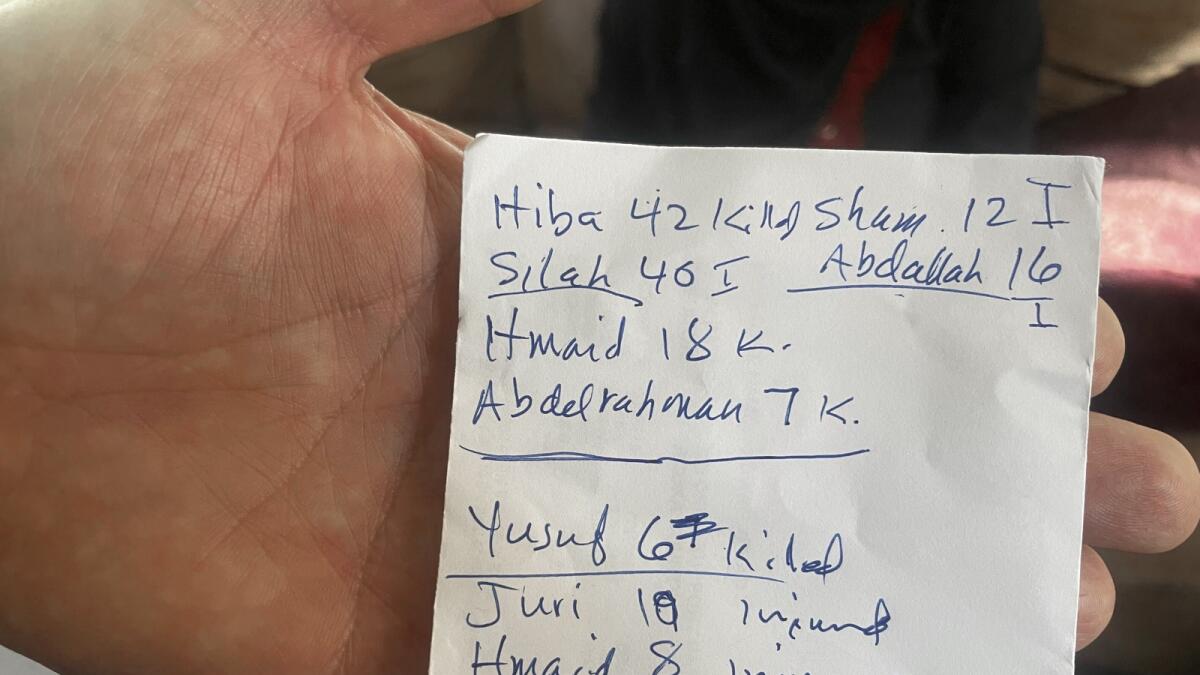 Hiba 42 killed Sham. 12 I
Silah 40 I Abdallah 16
I
Hmaid 18 K.
Abdelrahman 7 K.
Yusuf 6 killed
Juri injured
Hmaid 8